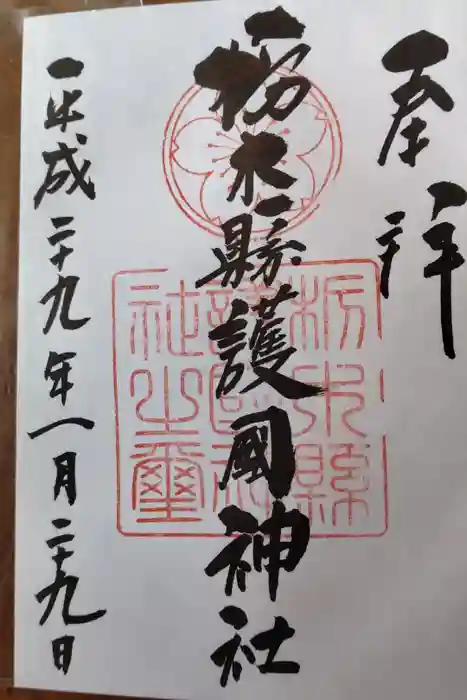 奉拝
栃木縣護國神社
平成二十九年一月二十九日
栃木縣
護國神
社之璽